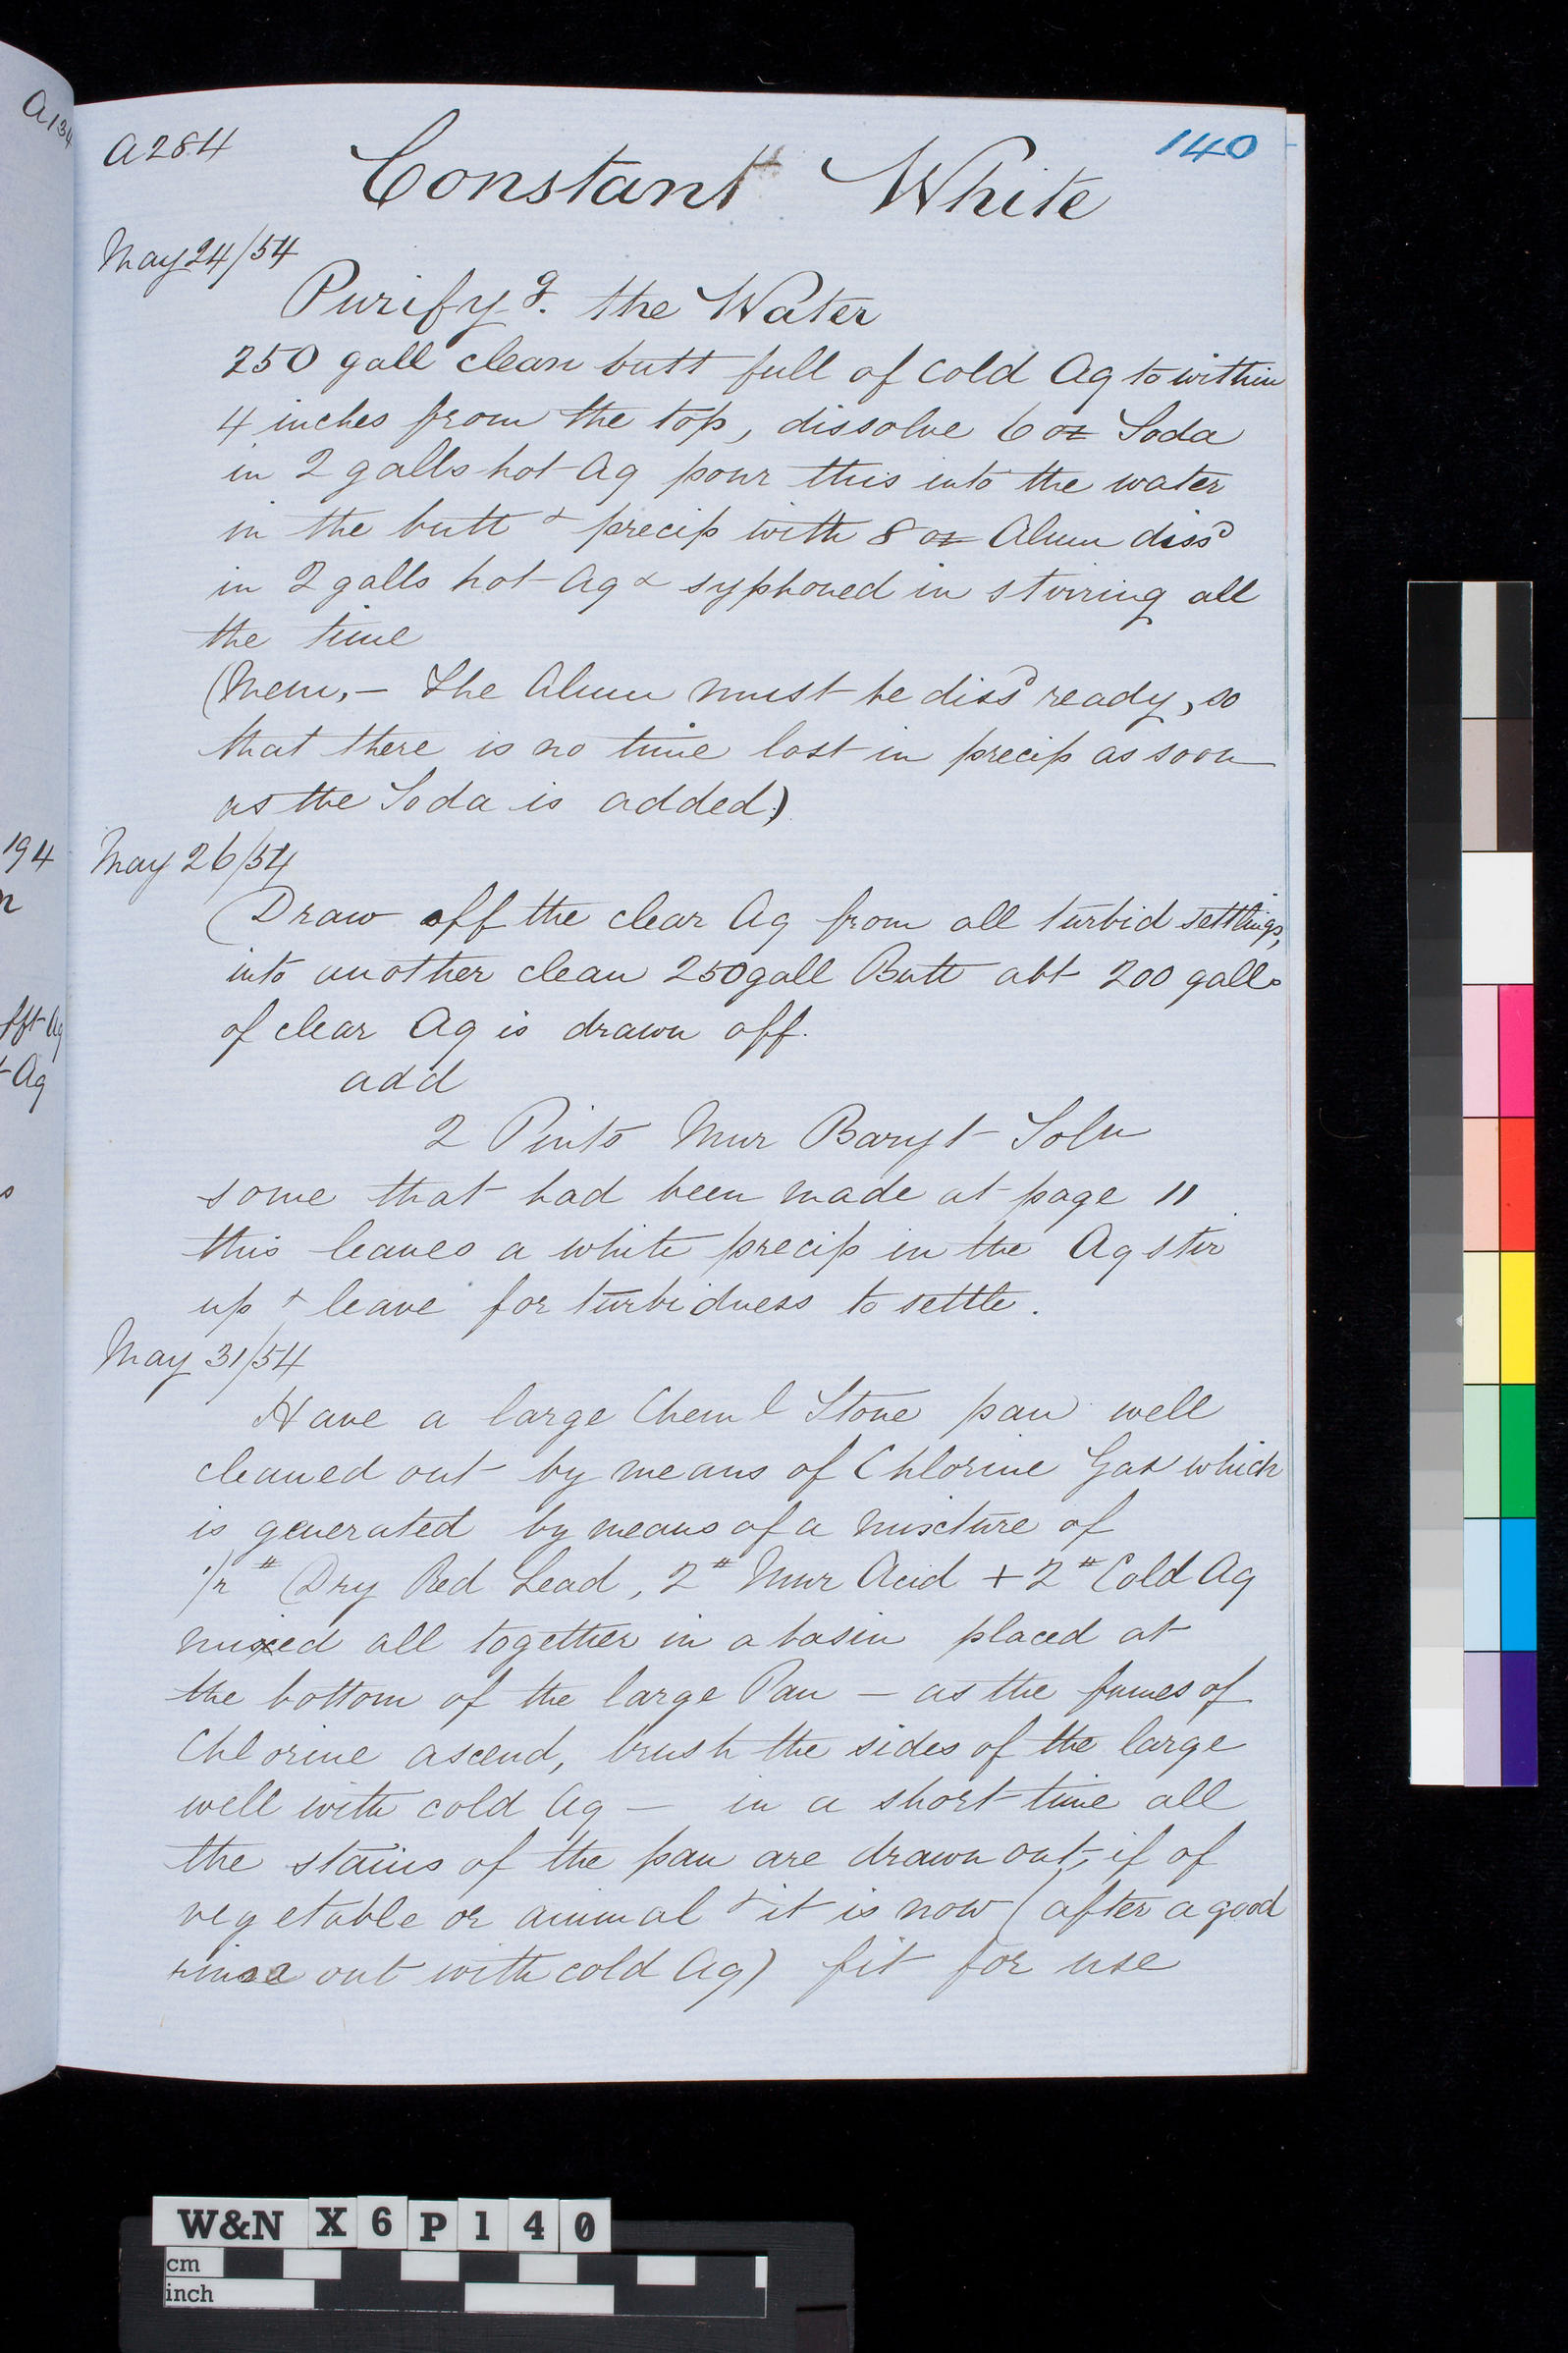 A134
A284
140
Constant White
May 24/54
Purifyg. the Water
250 gall clean butt full of cold Aq to within
4 inches from the top, dissolve 6 oz Soda
in 2 galls hot Aq pour this into the water
in the butt + precip with 8 oz Alum dissd
in 2 galls hot Aq & syphoned in stirring all
the time
(Mem,– The Alum must be dissd ready, so
that there is no time lost in precip as soon
as the Soda is added)
194
May 26/54
Draw off the clear Aq from all turbid settlings,
into another clean 250 gall Butt abt 200 galls
of clear Aq is drawn off.
Aq
add
2 Pints Mur Baryt Soln
some that had been made at page 11
this leaves a white precip in the Aq stir
up + leave for turbidness to settle.
May 31/54
Have a large Cheml Stone pan well
cleaned out by means of Chlorine Gas which
is generated by means of a mixture of
1/2 # Dry Red Lead, 2 # Mur Acid + 2 # Cold Aq
mixed all together in a basin placed at
the bottom of the large Pan – as the fumes of
Chlorine ascend, brush the sides of the large
well with cold Aq – in a short time all
the stains of the pan are drawn out, if of
vegetable or animal + it is now (after a good
rinse out with cold Aq) fit for use
W&N X6P140
cm
inch